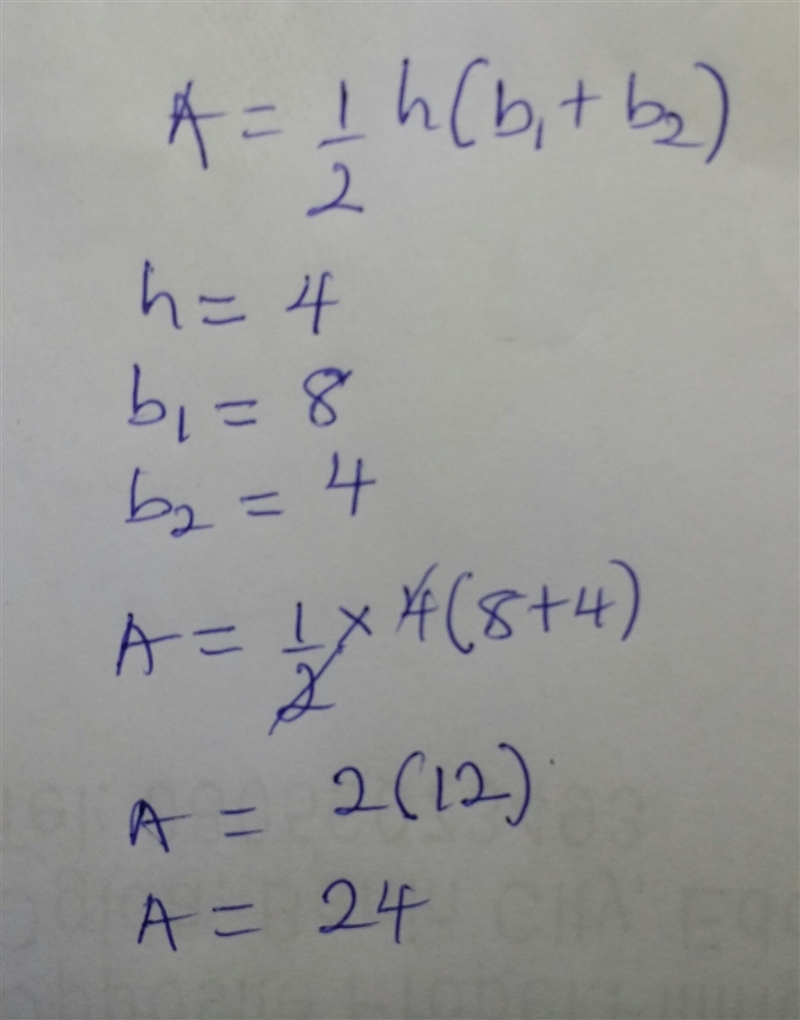 A = 1/2 h(b₁ + b₂)
h = 4
b₁ = 8
b₂ = 4
A = 1/2 × 4(8+4)
A = 2(12)
A = 24